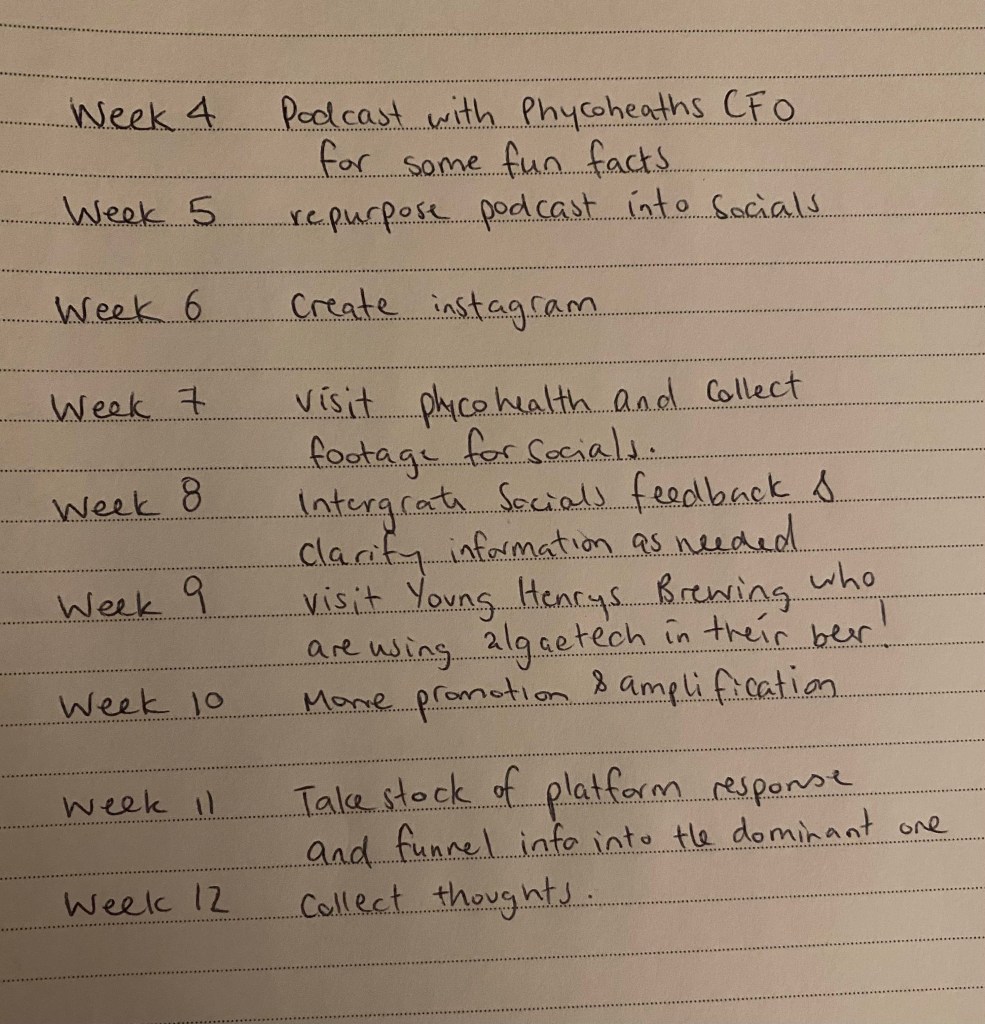 Week 4 Podcast with Phycoheaths CFO
for some fun facts
Week 5 repurpose podcast into Socials
Week 6 Create instagram
Week 7 visit phycohealth and Collect
footage for Socials.
Week 8 Intergrate Socials feedback &
clarify information as needed
Week 9 visit Young Henrys Brewing who
are using algaetech in their beer!
Week 10 More promotion & amplification
Week 11 Take stock of platform response
and funnel info into the dominant one
Week 12 Collect thoughts.